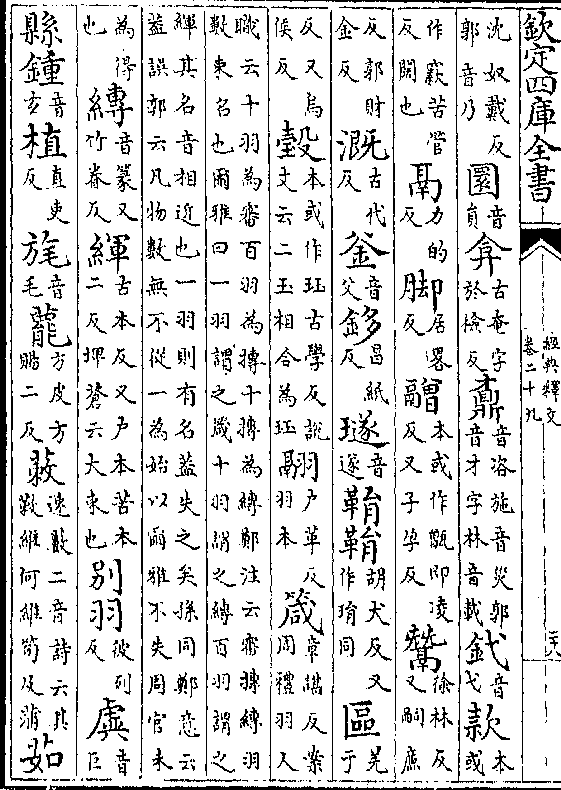 欽定四庫全書
經典釋文
卷二十九
沈奴戴反郭音乃 圜音員 弇古奄字於檢反 鼒音咨施音災郭音才字林音載 釴音弋 款本或
作窾苦管反闊也 鬲力的反 脚居畧反 䰝本或作甑即凌反又子孕反 鬵徐林反又嗣廉
反郭財金反 溉古代反 釜音父 鉹昌紙反 璲音遂 鞙鞙胡犬反又作琄同 區羌于
反又烏侯反 瑴本或作珏古學反說文云二玉相合為珏 翮户革反羽本 箴章諶反案周禮羽人
職云十羽為審百羽為摶十摶為縛鄭注云審摶縛羽數束名也爾雅曰一羽謂之箴十羽謂之縛百羽謂之
緷其名音相近也一羽則有名蓋失之矣孫同鄭意云蓋誤郭云凡物數無不從一為始以爾雅不失周官未
為得也 縳音篆又竹眷反 緷古本反又户本苦本二反埤蒼云大束也 别羽彼列反 虡音巨
縣鍾音玄 植直吏反 旄音毛 䍦方皮方賜二反 蔌速數二音詩云其蔌維何維筍及蒲 茹